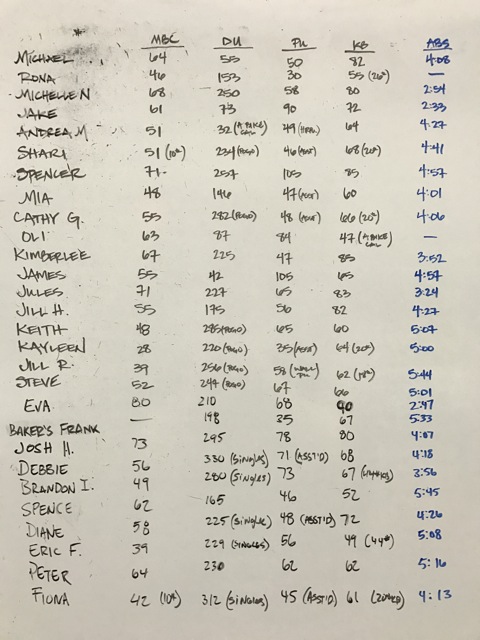 MBC DU PU KB ABS
MICHAEL 64 55 50 82 4:08
RONA 46 153 30 55 (26#) —
MICHELLE N 68 250 58 80 2:54
JAKE 61 73 90 72 2:33
ANDREA M 51 32 (A BIKE CAL 49 (HEEL) 64 4:27
SHARI 51 (10#) 234 (POGO) 46 (ASST) 68 (20#) 4:41
SPENCER 71 257 105 85 4:57
MIA 48 146 47 (ASST) 60 4:01
CATHY G. 55 282 (POGO) 48 (ASST) 66 (20#) 4:06
OLI 63 87 84 47 (A BIKE CAL —
KIMBERLEE 67 225 47 85 3:52
JAMES 55 42 105 65 4:57
JULES 71 227 65 83 3:24
JILL H. 55 175 56 82 4:27
KEITH 48 285 (POGO) 65 60 5:07
KAYLEEN 28 220 (POGO) 35 (ASST) 64 (20#) 5:00
JILL R. 39 256 (POGO) 58 (WALL PU 62 (18#) 5:44
STEVE 52 244 (POGO) 67 66 5:01
EVA 80 210 68 90 2:47
BAKER'S FRANK — 198 35 67 5:33
JOSH H. 73 295 78 80 4:07
DEBBIE 56 330 (SINGLES) 71 (ASST'D) 68 4:18
BRANDON I. 49 280 (SINGLES) 73 67 3:56
SPENCE 62 165 46 52 5:45
DIANE 58 225 (SINGLE 48 (ASST'D) 72 4:26
ERIC F. 39 229 (SINGLES) 56 49 (44#) 5:08
PETER 64 230 62 62 5:16
FIONA 42 (10#) 312 (SINGLES) 45 (ASST'D) 61 4:13